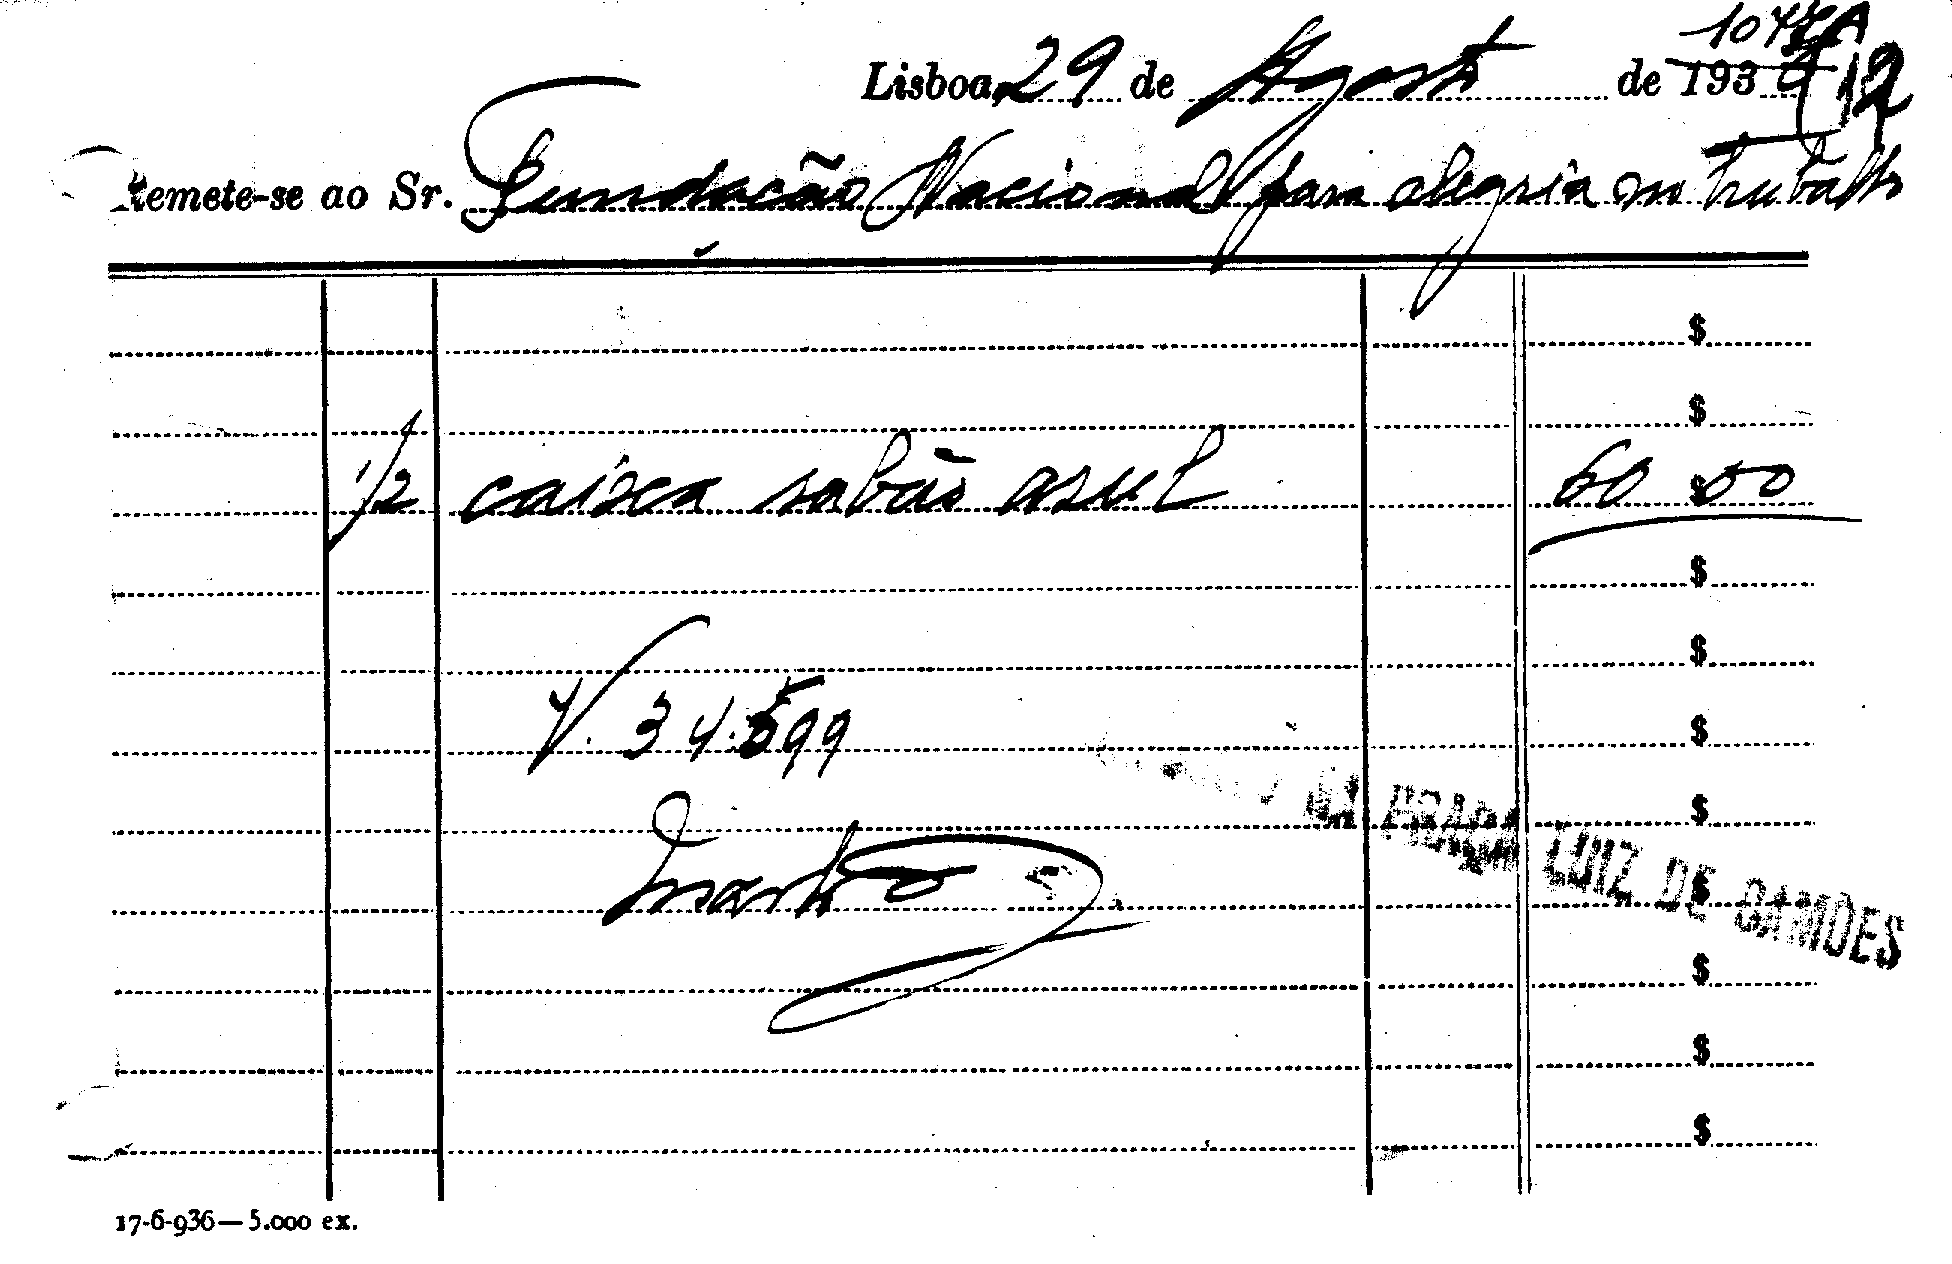 Lisboa, 29 de Agosto de 1939
Remete-se ao Sr. Fundação Nacional para alegria no trabalho
$
$
1/2 caixa sabão asul 60 $ 00
$
$
V. 34.599 $
NA PRAÇA LUIZ DE CAMOES
$
$
$
$
$
17-6-936—5.000 ex.